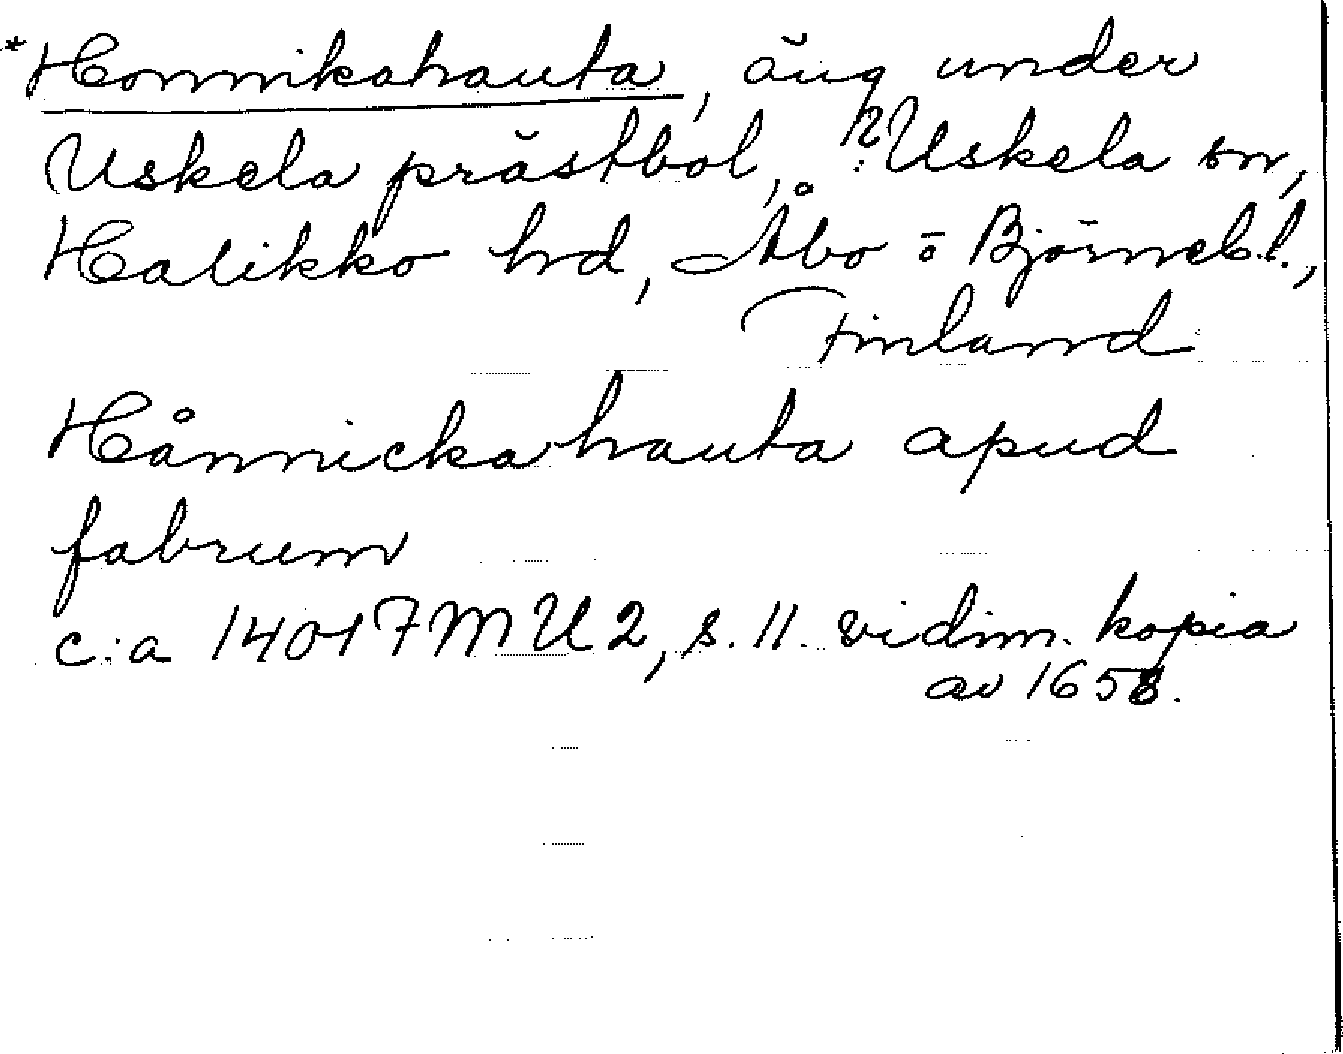 *Honnikahauta, äng under
Uskela prästbol, ?Uskela sn,
Halikko hd, Åbo o Björneb.l.,
Finland
Hånnickahauta apud
fabrum
c:a 1401 FMU 2, s. 11. vidim. kopia
av 1658.